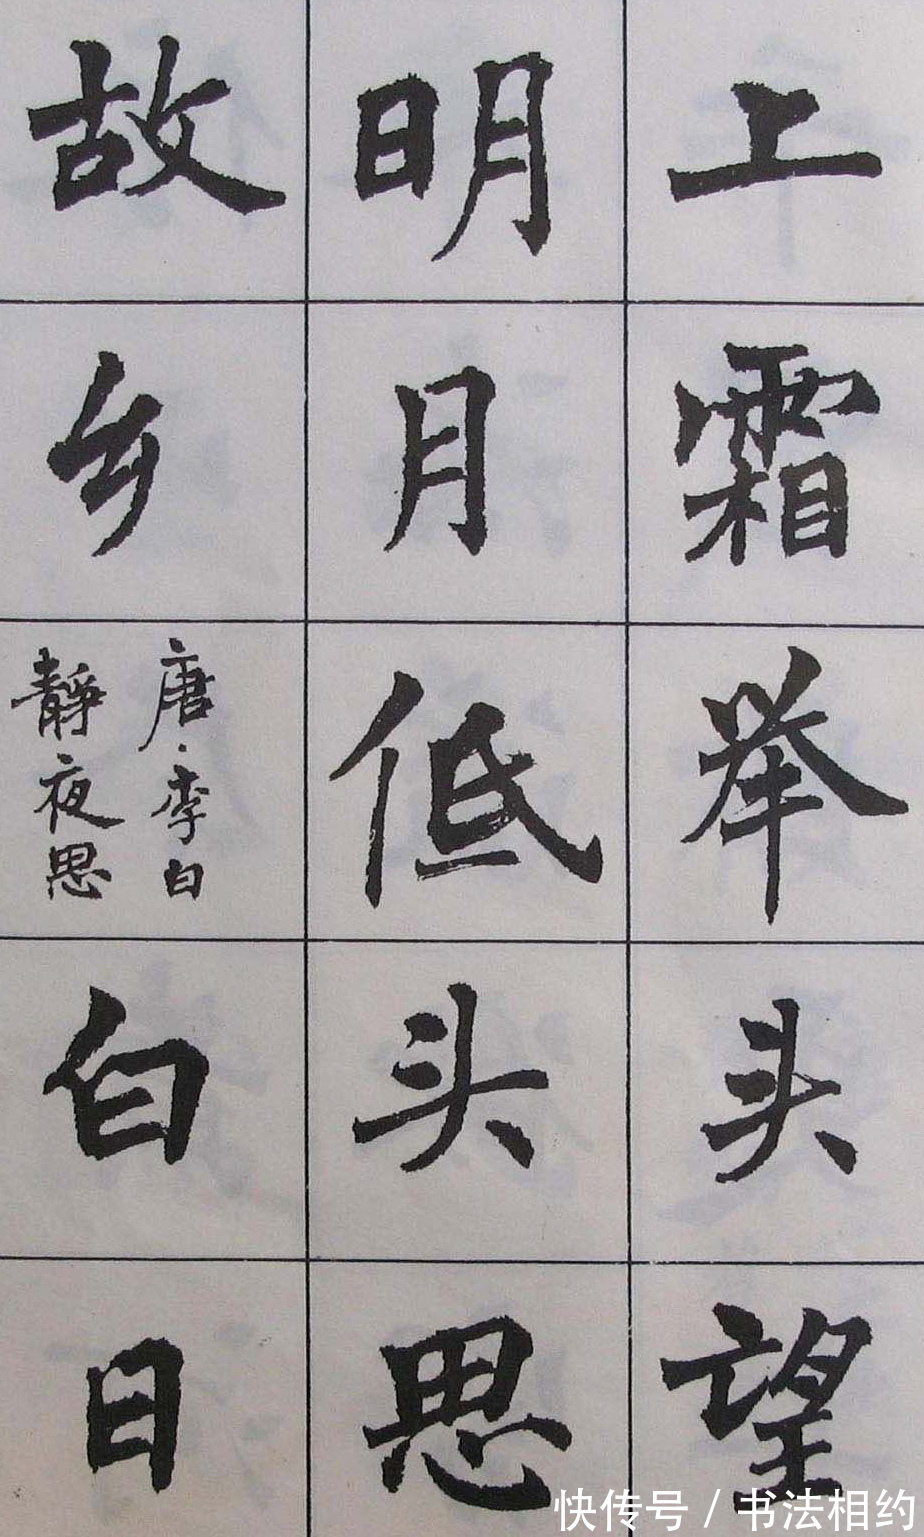 上霜举头望
明月低头思
故乡
唐·李白
静夜思
白日
快传号 / 书法相约